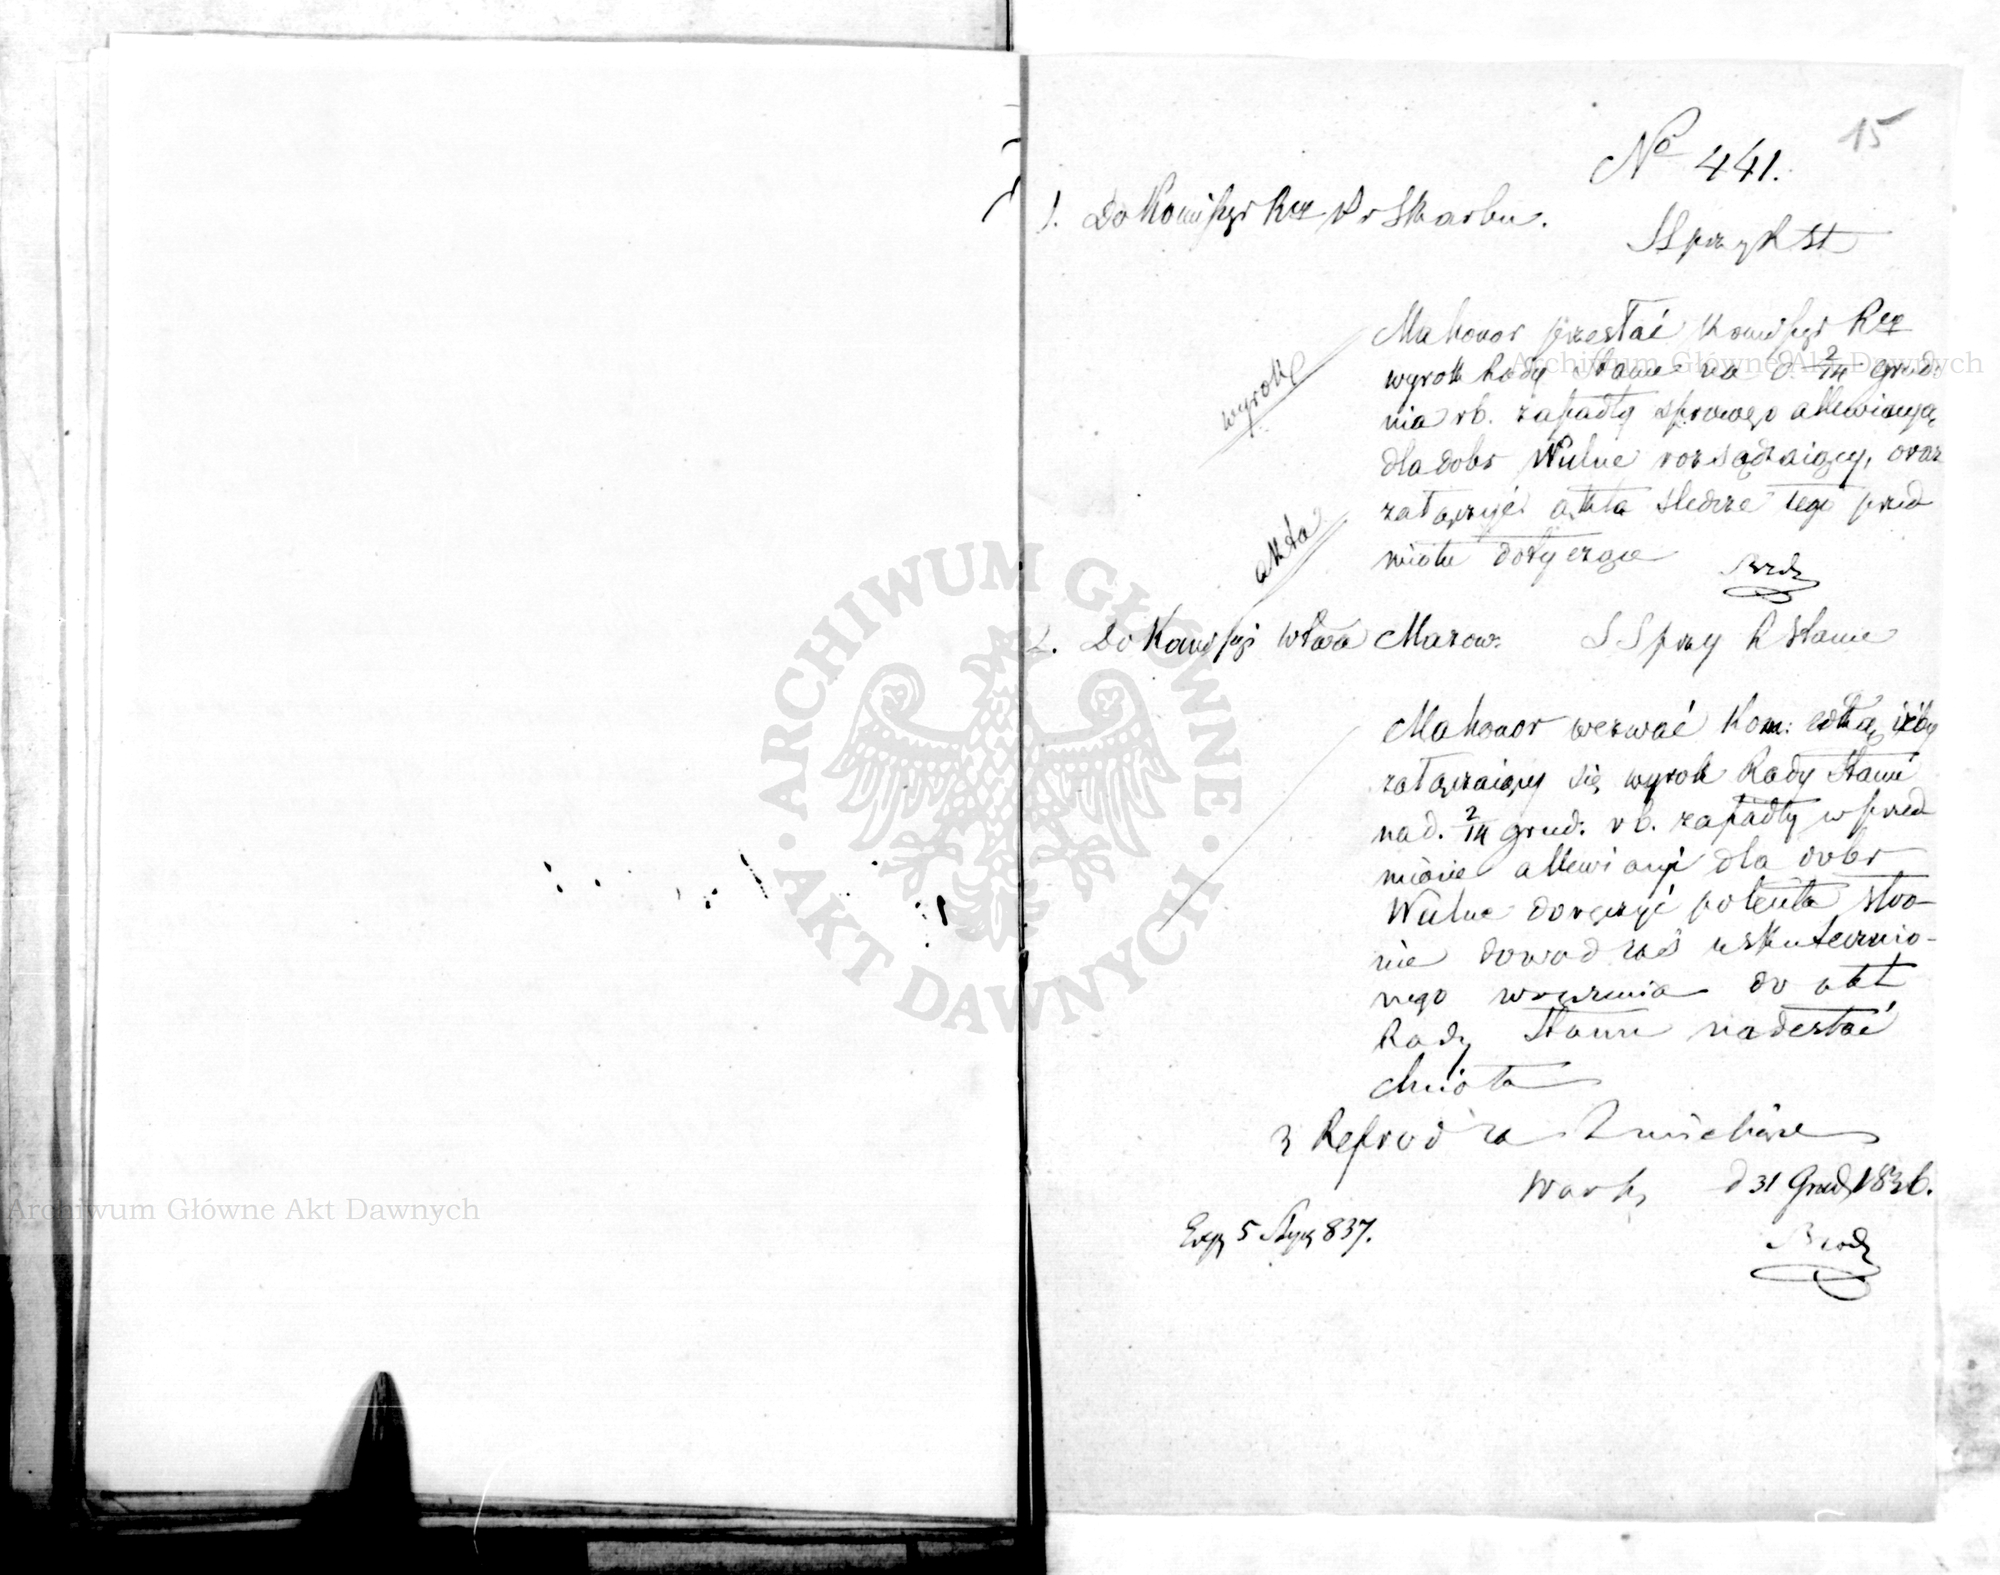 15
No 441.
1. Do Komissyi Rzą Pr Skarbu.
SS przy R St
Ma honor przesłać Komissyi Rzą
wyrok Rady Stanu na d. 2/14 grud-
nia rb. zapadły sprawę o allewiacyą
dla dobr Wulne rozsądzaiący, oraz
załączyć akta śledcze tego przed
miotu dotyczące
wyrok
akta
2. Do Komissyi Wdztwa Mazow: SS przy R Stanu
Ma honor wezwać Kom: Wdką iżby
załączaiący się wyrok Rady Stanu
na d. 2/14 grud: rb. zapadły w przed
miocie allewiacyi dla dobr
Wulne doręczyć potentu stro-
nie dowod zaś uskutecznio-
nego wręczenia do akt
Rady Stanu nadesłać
chciała
3 Reprod za 2 miesiące
Warsz d 31 Grud 1836.
Exp 5 Stycz 837.
ARCHIWUM GŁÓWNE · AKT DAWNYCH ·
Archiwum Główne Akt Dawnych
Archiwum Główne Akt Dawnych